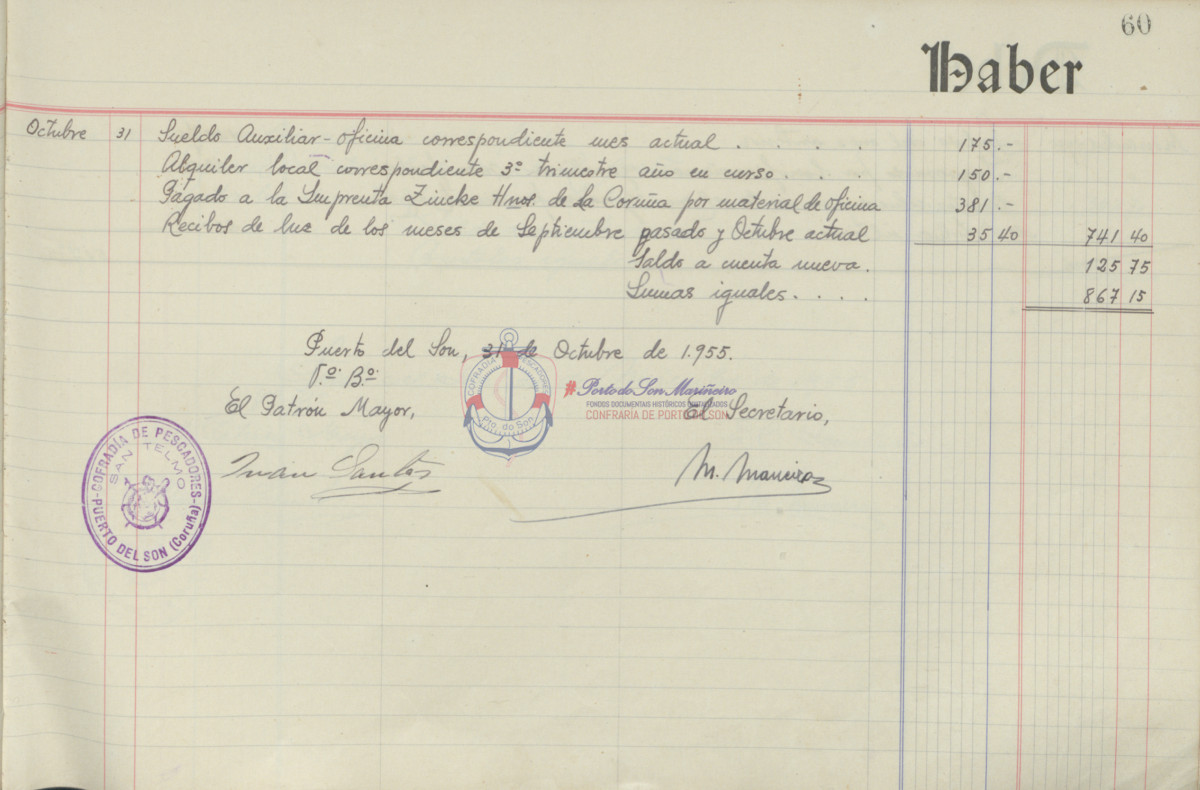 60
Haber
Octubre 31 Sueldo Auxiliar-oficina correspondiente mes actual . . . . 175.-
Alquiler local correspondiente 3º trimestre año en curso . . . 150.-
Pagado a la Imprenta Zincke Hnos. de La Coruña por material de oficina 381.-
Recibos de luz de los meses de Septiembre pasado y Octubre actual 35 40 741 40
Saldo a cuenta nueva. 125 75
Sumas iguales. . . . 867 15
Puerto del Son, 31 de Octubre de 1.955.
Vº. Bº.
El Patrón Mayor,
El Secretario,
Juan Santos
M. Maneiro
COFRADÍA DE PESCADORES
SAN TELMO
PUERTO DEL SON (Coruña)
COFRADÍA PESCADORES
Pto. do Son
#Porto do Son Mariñeiro
FONDOS DOCUMENTAIS HISTÓRICOS
CONFRARÍA DE PORTO DO SON